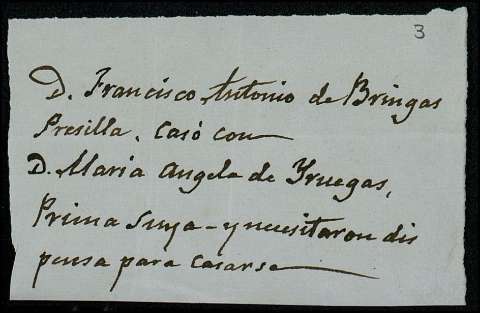 3
D. Francisco Antonio de Bringas
Presilla. Casó con
D. Maria Angela de Yruegas,
Prima suya - y necesitaron dis
pensa para casarse